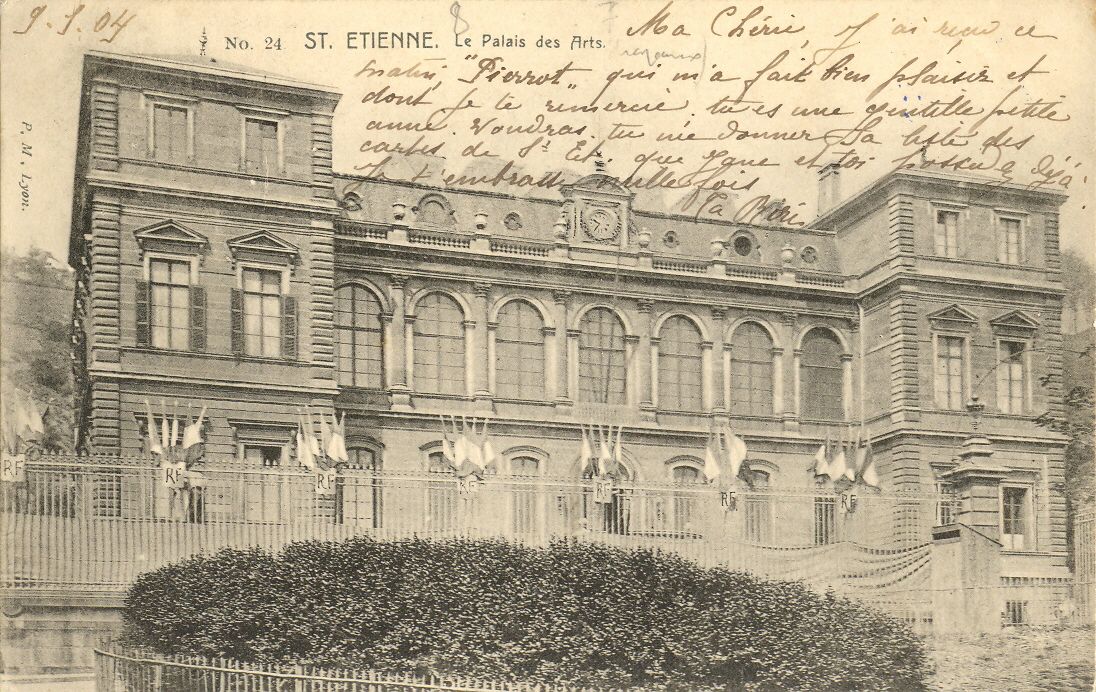 9.5.04
8
No. 24 ST. ETIENNE. Le Palais des Arts.
Ma Chérie, J'ai reçu ce
matin, "Pierrot" qui m'a fait bien plaisir et
dont je te remercie, tu es une gentille petite
amie. Voudras-tu me donner la liste des
cartes de St Et. que Jane et toi déjà.
Je t'embrasse mille fois
Ta
P. M., Lyon.
RF
RF
RF
RF
RF
RF
RF